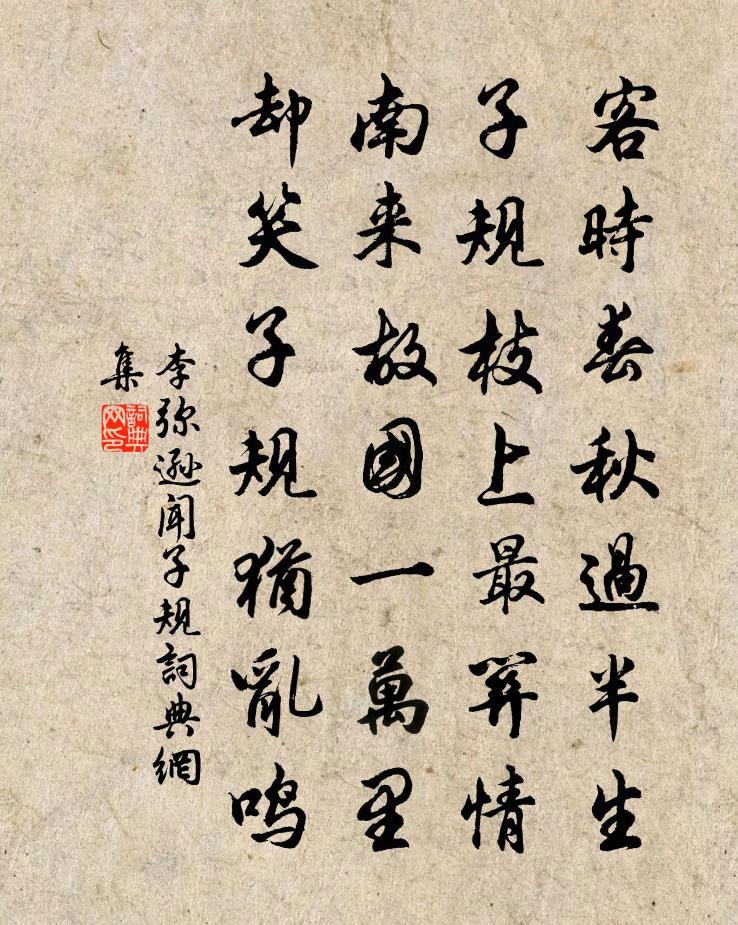 客時春秋過半生
子規枝上最關情
南来故國一萬里
却笑子規猶亂鳴
李弥遜聞子規詞典網
集
詞典
网印